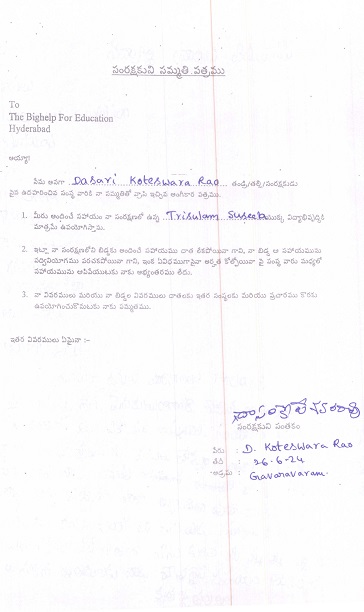 సంరక్షకుని సమ్మతి పత్రము
To
The Bighelp For Education
Hyderabad
అయ్యా!
నేను అనగా Dasari Koteswara Rao తండ్రి/తల్లి/సంరక్షకుడు
పైన ఉదహరించిన సంస్థ వారికి నా సమ్మతితో వ్రాసి ఇచ్చిన అంగీకార పత్రము.
1. మీరు అందించే సహాయం నా సంరక్షణలో ఉన్న Trisulam Suseela యొక్క విద్యాభివృద్ధికి
మాత్రమే ఉపయోగిస్తాను.
2. ఇట్లా నా సంరక్షణలోని బిడ్డకు అందించే సహాయము దాత లేకపోయినా గాని, నా బిడ్డ ఆ సహాయమును
సద్వినియోగము పరచకపోయినా గాని, ఇంక ఏవిధముగానైనా అర్హత కోల్పోయినా పై సంస్థ వారు మధ్యలో
సహాయమును ఆపివేయుటకు నాకు అభ్యంతరము లేదు.
3. నా వివరములు మరియు నా బిడ్డల వివరములు దాతలకు ఇతర సంస్థలకు మరియు ప్రచారము కొరకు
ఉపయోగించుకొనుటకు నాకు సమ్మతము.
ఇతర వివరములు ఏమైనా :-
సంరక్షకుని సంతకం
పేరు : D. Koteswara Rao
తేది : 26-6-24
అడ్రసు : Gavaravaram.